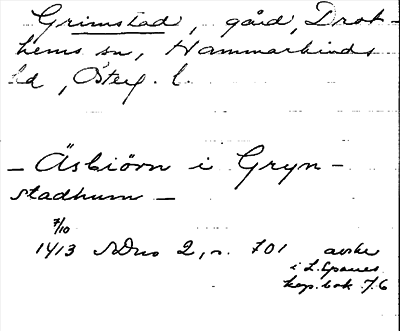 Grimstad, gård, Drot-
hems sn, Hammarkinds
hd, Österg. l.
– Äsbiörn i Gryn-
stadhum –
7/10
1413 SDns 2, n. 701 avskr
i L. Sparres
kop.bok f. 6